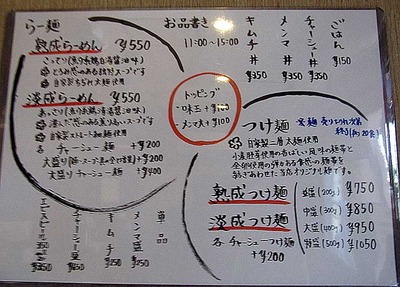 らー麺
熟成らーめん ¥550
こってり(魚介系鶏白湯醤油味)
とろみ感のある濃厚スープです
自家製ちぢれ太麺使用
淡成らーめん ¥550
あっさり(魚介系鶏清湯醤油味)
自家製ストレート細麺使用
各 チャーシュー麺 +¥200
大盛り(麺・スープ・具の全てが増量) +¥200
大盛りチャーシュー麺 +¥400
お品書き
11:00~15:00
ごはん ¥150
チャーシュー丼 ¥350
メンマ丼 ¥350
キムチ丼 ¥350
トッピング
味玉 +¥100
メンマ大 +¥100
つけ麺
自家製二層太麺使用
熟成つけ麺
淡成つけ麺
各 チャーシューつけ麺
+¥200
並盛(200g) ¥750
中盛(300g) ¥850
大盛(400g) ¥950
特盛(500g) ¥1050
単品
メンマ皿 ¥250
キムチ皿 ¥250
チャーシュー皿 ¥450